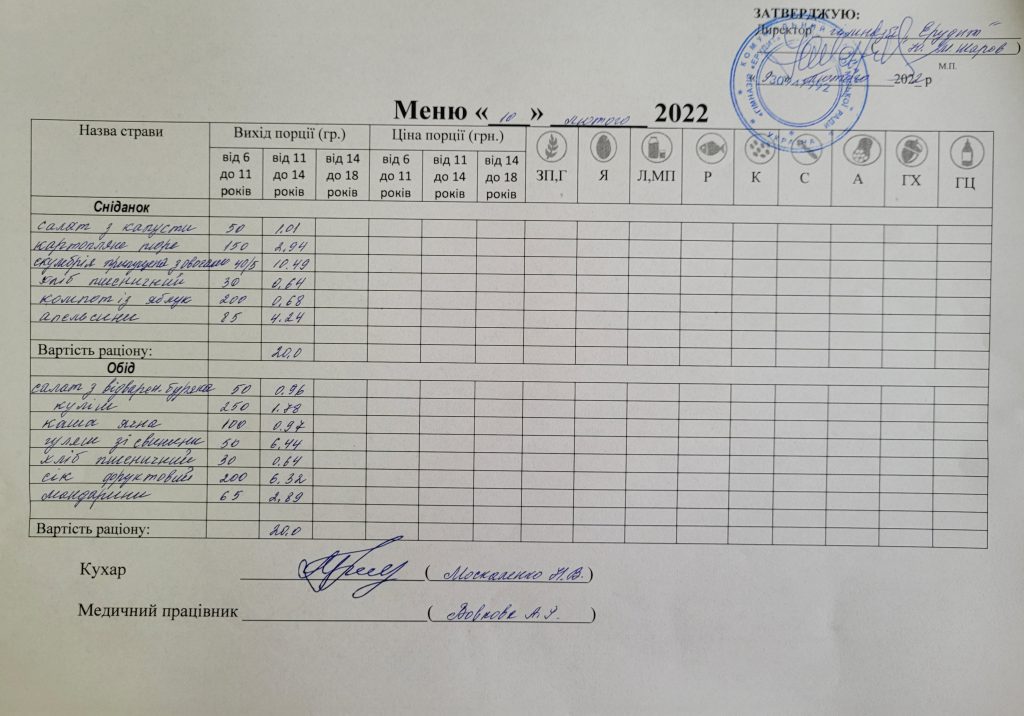 ЗАТВЕРДЖУЮ:
Директор гімназії Ерудит
( Ю. )
М.П.
« 9 » лютого 2022 р
Меню « 10 » лютого 2022
Назва страви Вихід порції (гр.) Ціна порції (грн.)
від 6 до 11 років від 11 до 14 років від 14 до 18 років від 6 до 11 років від 11 до 14 років від 14 до 18 років ЗП,Г Я Л,МП Р К С А ГХ ГЦ
Сніданок
салат з капусти 50 1.01
картопляне пюре 150 2,94
скумбрія припущена з овочами 40/5 10.49
хліб пшеничний 30 0,64
компот із яблук 200 0,68
апельсини 85 4.24
Вартість раціону: 20,0
Обід
салат з відварен. буряка 50 0.96
куліш 250 1.78
каша ячна 100 0.97
гуляш зі свинини 50 6,44
хліб пшеничний 30 0.64
сік фруктовий 200 6,32
мандарини 65 2,89
Вартість раціону: 20,0
Кухар ( Москаленко Н.В. )
Медичний працівник ( Вовкова А. )